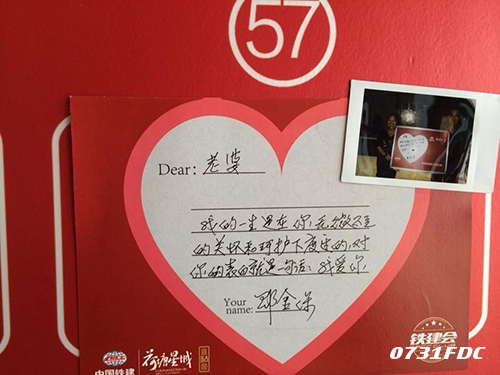 57
Dear: 老婆
我的一生是在你无微不至
的关怀和呵护下度过的,对
你的表白就是一句话:我爱你
Your
name: 邓金保
中国铁建
荷源星城
铁建会
0731FDC